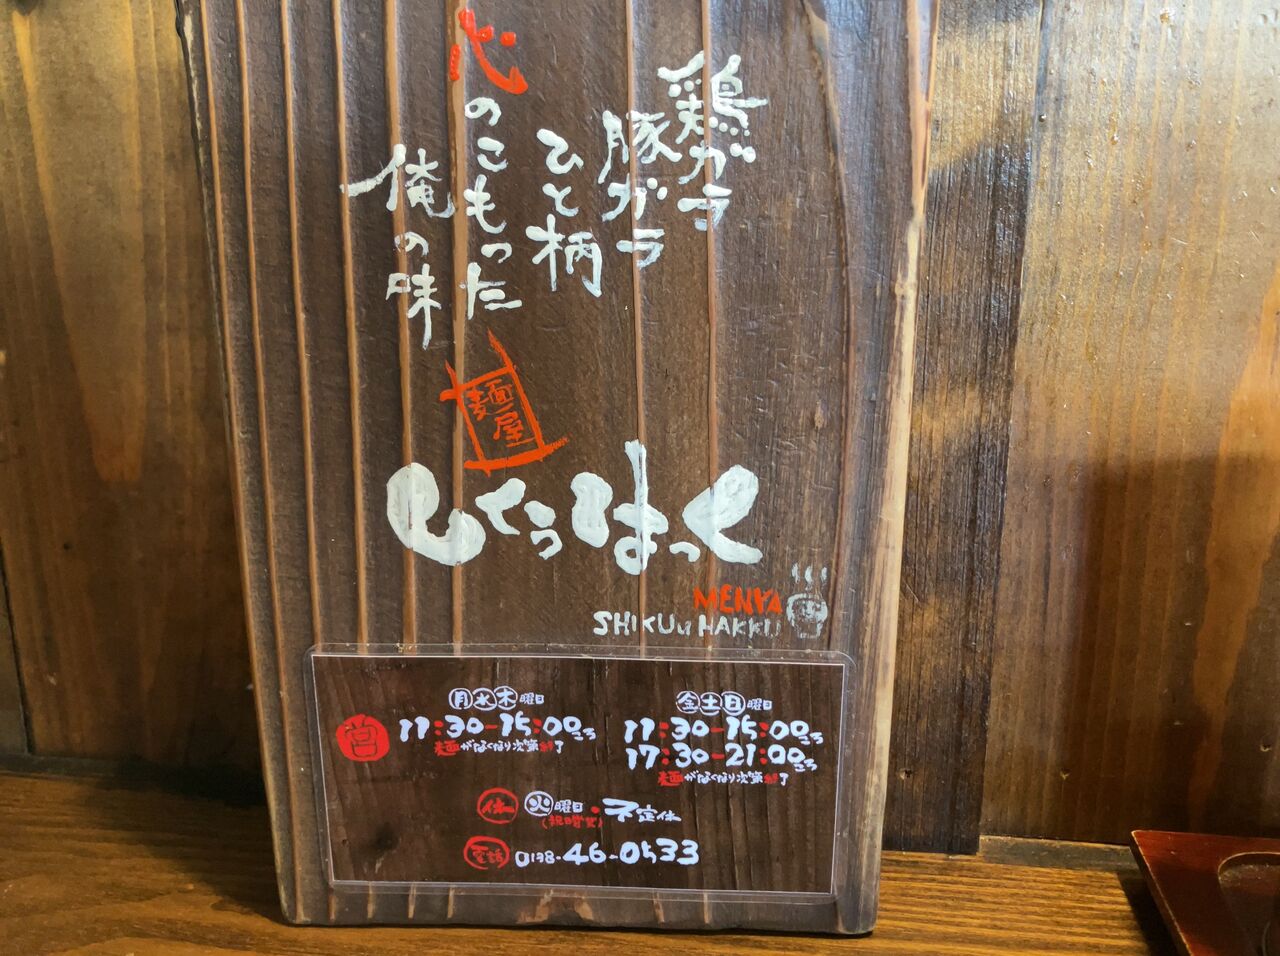 鶏ガラ
豚ガラ
ひと柄
心のこもった
俺の味
麺屋
しくうはっく
MENYA
SHIKUu HAKKU
営
月水木曜日
11:30-15:00ころ
麺がなくなり次第終了
金土日曜日
11:30-15:00ころ
17:30-21:00ころ
麺がなくなり次第終了
休 火曜日・不定休
(祝日営業)
電話 0138-46-0533